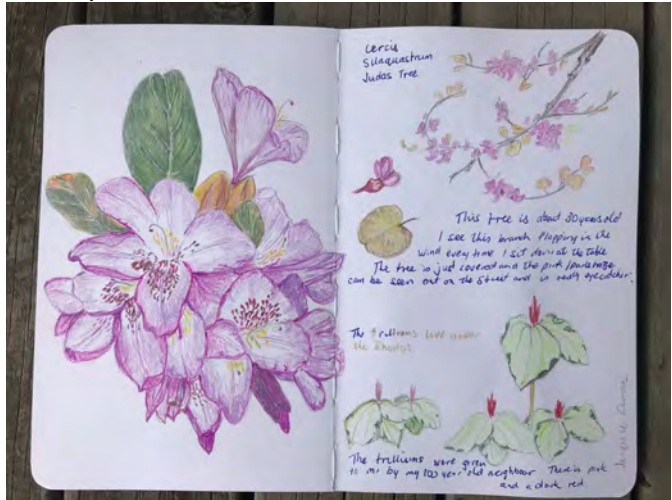 Cercis
Siliquastrum
Judas Tree
This tree is about 30 years old
I see this branch flapping in the
wind every time I sit down at the table
The tree is just covered and the pink/
can be seen out on the street and is really eyecatcher!
The trilliums love under
the Rhodos
The trilliums were given
to me by my 100 year old neighbour There is pink
and a dark red